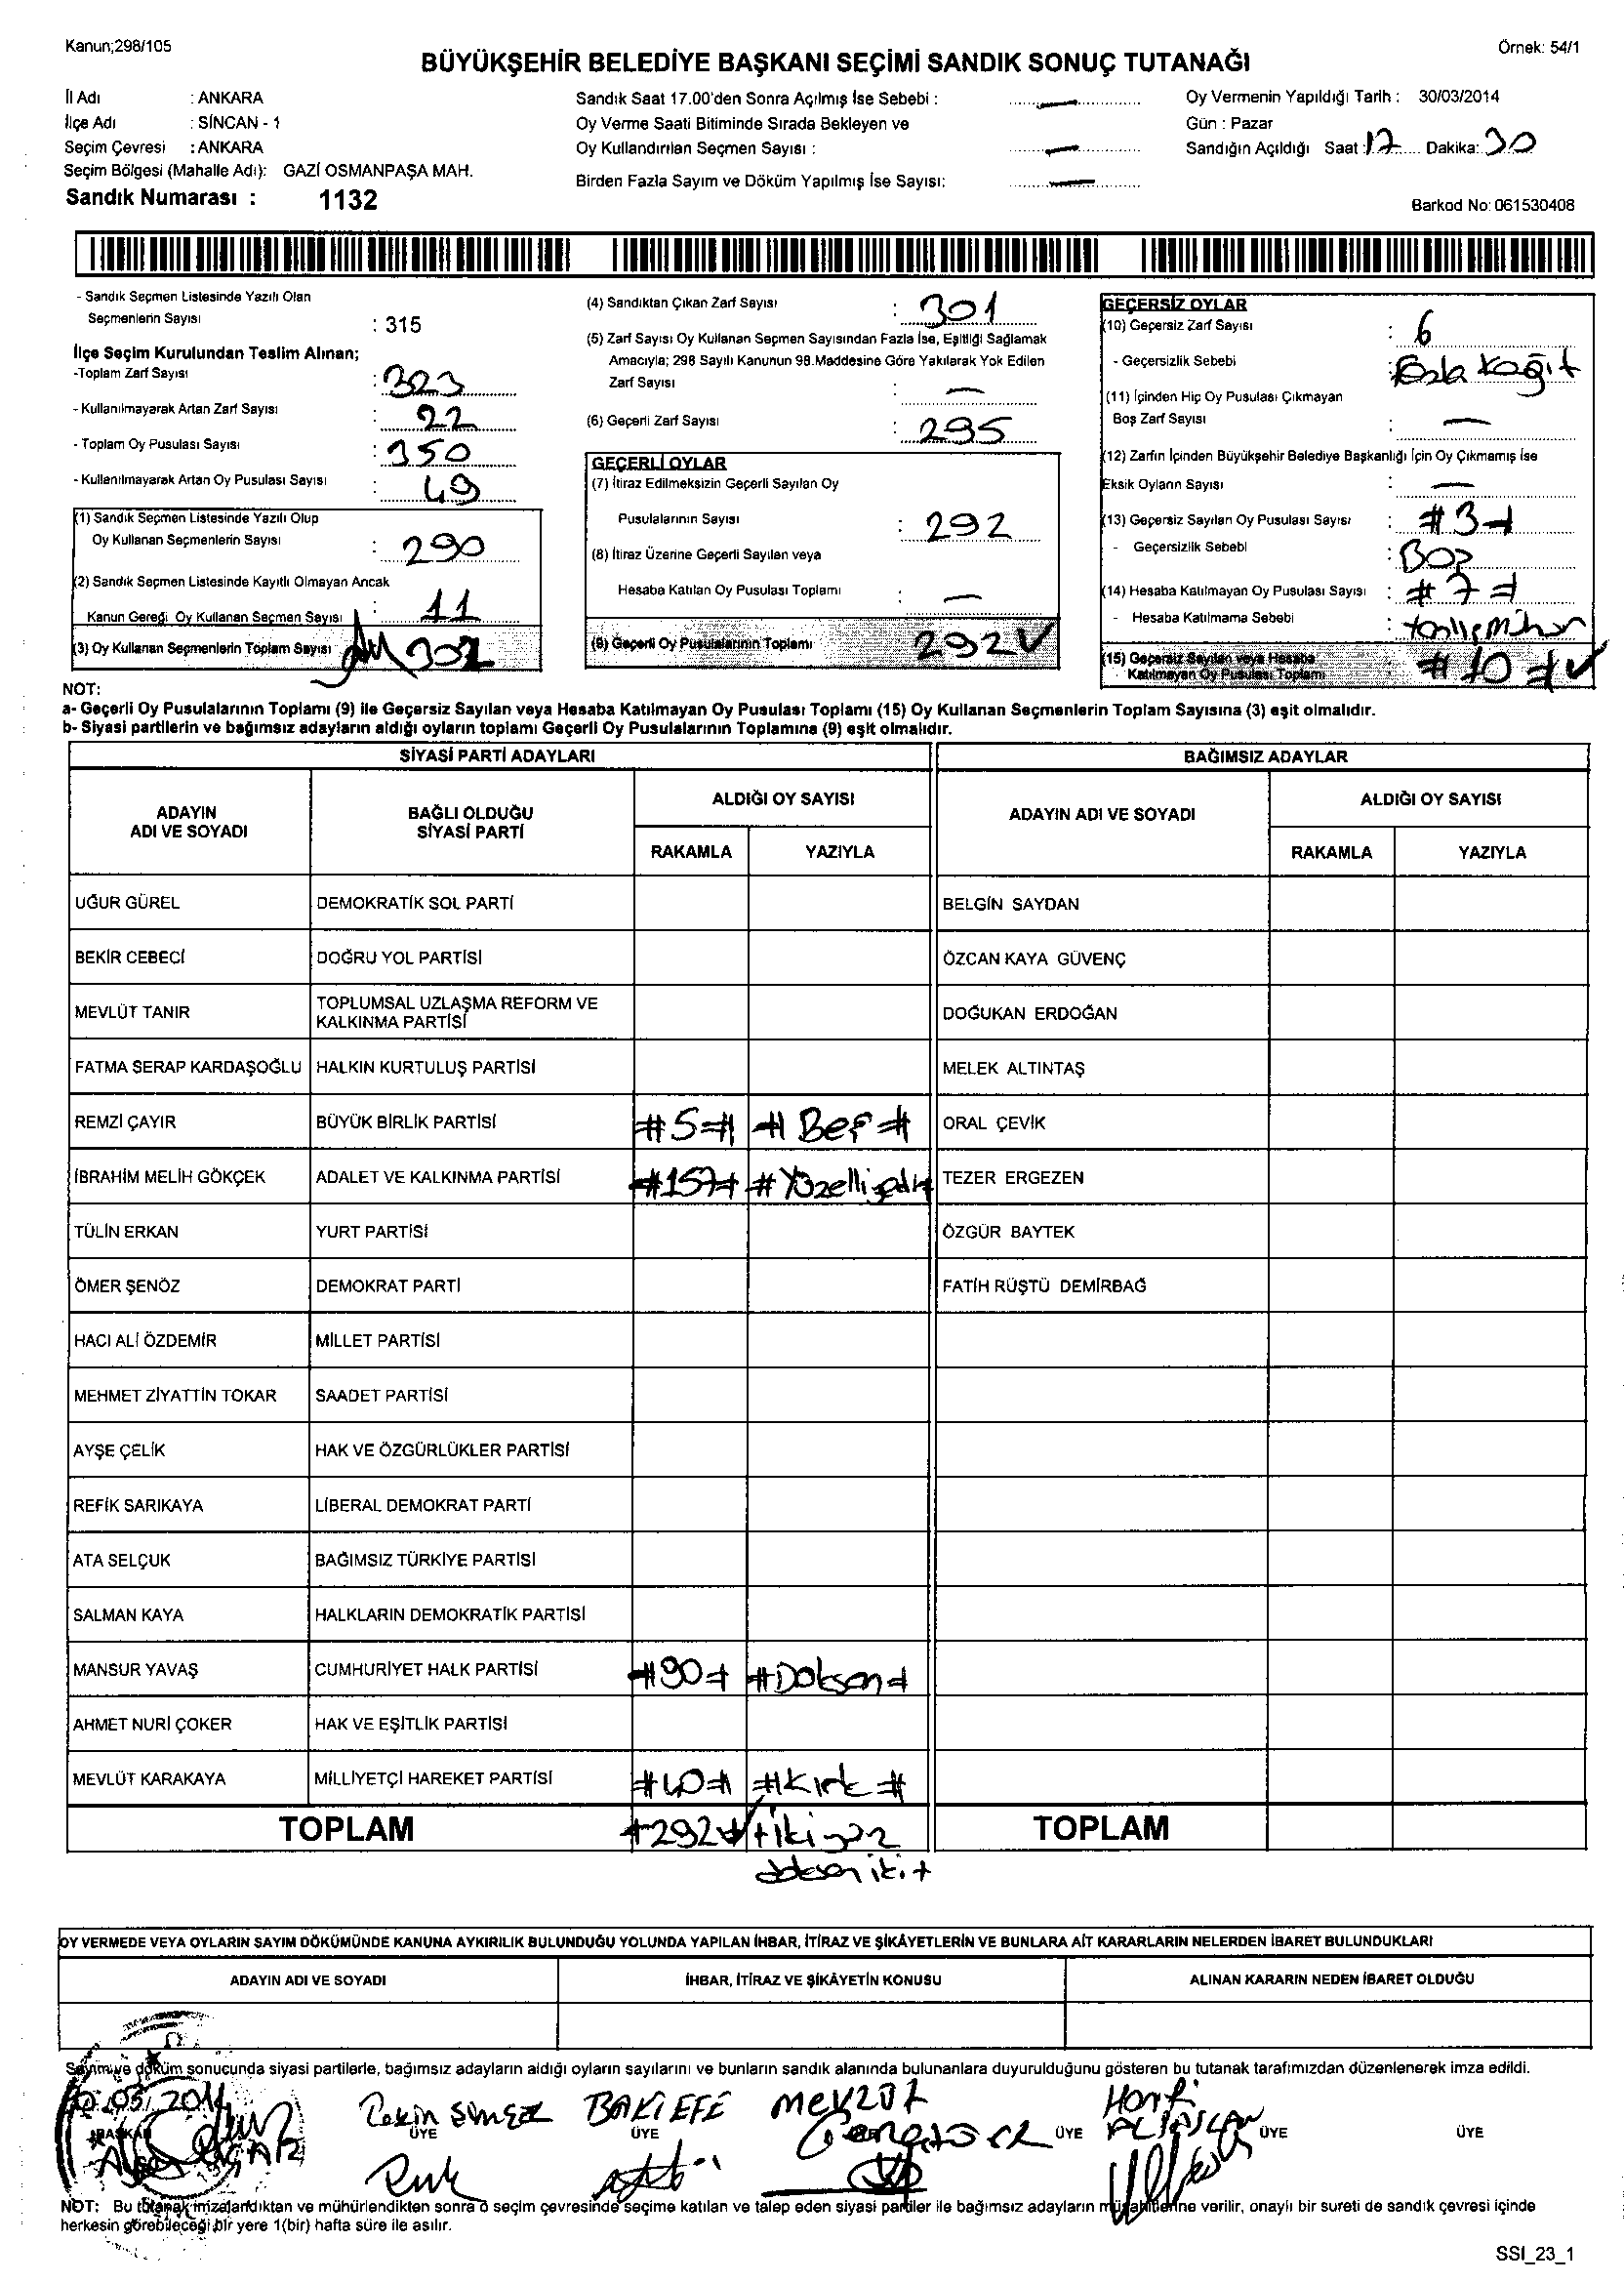 Kanun;298/105
Örnek: 54/1
BÜYÜKŞEHİR BELEDİYE BAŞKANI SEÇİMİ SANDIK SONUÇ TUTANAĞI
İl Adı : ANKARA
İlçe Adı : SİNCAN - 1
Seçim Çevresi : ANKARA
Seçim Bölgesi (Mahalle Adı): GAZİ OSMANPAŞA MAH.
Sandık Numarası : 1132
Sandık Saat 17.00'den Sonra Açılmış İse Sebebi : —
Oy Verme Saati Bitiminde Sırada Bekleyen ve
Oy Kullandırılan Seçmen Sayısı : —
Birden Fazla Sayım ve Döküm Yapılmış İse Sayısı: —
Oy Vermenin Yapıldığı Tarih : 30/03/2014
Gün : Pazar
Sandığın Açıldığı Saat : 17 Dakika: 30
Barkod No: 061530408
- Sandık Seçmen Listesinde Yazılı Olan
Seçmenlerin Sayısı : 315
İlçe Seçim Kurulundan Teslim Alınan;
-Toplam Zarf Sayısı : 323
- Kullanılmayarak Artan Zarf Sayısı : 22
- Toplam Oy Pusulası Sayısı : 350
- Kullanılmayarak Artan Oy Pusulası Sayısı : 49
(1) Sandık Seçmen Listesinde Yazılı Olup
Oy Kullanan Seçmenlerin Sayısı : 290
(2) Sandık Seçmen Listesinde Kayıtlı Olmayan Ancak
Kanun Gereği Oy Kullanan Seçmen Sayısı : 11
(3) Oy Kullanan Seçmenlerin Toplam Sayısı 302
(4) Sandıktan Çıkan Zarf Sayısı : 301
(5) Zarf Sayısı Oy Kullanan Seçmen Sayısından Fazla İse, Eşitliği Sağlamak
Amacıyla; 298 Sayılı Kanunun 98.Maddesine Göre Yakılarak Yok Edilen
Zarf Sayısı : —
(6) Geçerli Zarf Sayısı : 295
GEÇERLİ OYLAR
(7) İtiraz Edilmeksizin Geçerli Sayılan Oy
Pusulalarının Sayısı : 292
(8) İtiraz Üzerine Geçerli Sayılan veya
Hesaba Katılan Oy Pusulası Toplamı : —
(9) Geçerli Oy Pusulalarının Toplamı 292
GEÇERSİZ OYLAR
(10) Geçersiz Zarf Sayısı : 6
- Geçersizlik Sebebi : Fazla kağıt
(11) İçinden Hiç Oy Pusulası Çıkmayan
Boş Zarf Sayısı : —
(12) Zarfın İçinden Büyükşehir Belediye Başkanlığı İçin Oy Çıkmamış İse
Eksik Oyların Sayısı : —
(13) Geçersiz Sayılan Oy Pusulası Sayısı : #3#
- Geçersizlik Sebebi : Boş
(14) Hesaba Katılmayan Oy Pusulası Sayısı : #7#
- Hesaba Katılmama Sebebi :
(15) Geçersiz Sayılan veya Hesaba
Katılmayan Oy Pusulası Toplamı #10#
NOT:
a- Geçerli Oy Pusulalarının Toplamı (9) ile Geçersiz Sayılan veya Hesaba Katılmayan Oy Pusulası Toplamı (15) Oy Kullanan Seçmenlerin Toplam Sayısına (3) eşit olmalıdır.
b- Siyasi partilerin ve bağımsız adayların aldığı oyların toplamı Geçerli Oy Pusulalarının Toplamına (9) eşit olmalıdır.
SİYASİ PARTİ ADAYLARI BAĞIMSIZ ADAYLAR
ADAYIN ADI VE SOYADI BAĞLI OLDUĞU SİYASİ PARTİ ALDIĞI OY SAYISI ADAYIN ADI VE SOYADI ALDIĞI OY SAYISI
RAKAMLA YAZIYLA RAKAMLA YAZIYLA
UĞUR GÜREL DEMOKRATİK SOL PARTİ BELGİN SAYDAN
BEKİR CEBECİ DOĞRU YOL PARTİSİ ÖZCAN KAYA GÜVENÇ
MEVLÜT TANIR TOPLUMSAL UZLAŞMA REFORM VE KALKINMA PARTİSİ DOĞUKAN ERDOĞAN
FATMA SERAP KARDAŞOĞLU HALKIN KURTULUŞ PARTİSİ MELEK ALTINTAŞ
REMZİ ÇAYIR BÜYÜK BİRLİK PARTİSİ #5# #Beş# ORAL ÇEVİK
İBRAHİM MELİH GÖKÇEK ADALET VE KALKINMA PARTİSİ #157# #Yüzelliyedi# TEZER ERGEZEN
TÜLİN ERKAN YURT PARTİSİ ÖZGÜR BAYTEK
ÖMER ŞENÖZ DEMOKRAT PARTİ FATİH RÜŞTÜ DEMİRBAĞ
HACI ALİ ÖZDEMİR MİLLET PARTİSİ
MEHMET ZİYATTİN TOKAR SAADET PARTİSİ
AYŞE ÇELİK HAK VE ÖZGÜRLÜKLER PARTİSİ
REFİK SARIKAYA LİBERAL DEMOKRAT PARTİ
ATA SELÇUK BAĞIMSIZ TÜRKİYE PARTİSİ
SALMAN KAYA HALKLARIN DEMOKRATİK PARTİSİ
MANSUR YAVAŞ CUMHURİYET HALK PARTİSİ #90# #Doksan#
AHMET NURİ ÇOKER HAK VE EŞİTLİK PARTİSİ
MEVLÜT KARAKAYA MİLLİYETÇİ HAREKET PARTİSİ #40# #Kırk#
TOPLAM #292# iki yüz TOPLAM
doksan iki
OY VERMEDE VEYA OYLARIN SAYIM DÖKÜMÜNDE KANUNA AYKIRILIK BULUNDUĞU YOLUNDA YAPILAN İHBAR, İTİRAZ VE ŞİKÂYETLERİN VE BUNLARA AİT KARARLARIN NELERDEN İBARET BULUNDUKLARI
ADAYIN ADI VE SOYADI İHBAR, İTİRAZ VE ŞİKÂYETİN KONUSU ALINAN KARARIN NEDEN İBARET OLDUĞU
Sayım ve döküm sonucunda siyasi partilerle, bağımsız adayların aldığı oyların sayılarını ve bunların sandık alanında bulunanlara duyurulduğunu gösteren bu tutanak tarafımızdan düzenlenerek imza edildi.
03/2014
BAKİ EFE
BAŞKAN ÜYE ÜYE ÜYE ÜYE ÜYE
NOT: Bu tutanak imzalandıktan ve mühürlendikten sonra o seçim çevresinde seçime katılan ve talep eden siyasi partiler ile bağımsız adayların müşahitlerine verilir, onaylı bir sureti de sandık çevresi içinde
herkesin görebileceği bir yere 1(bir) hafta süre ile asılır.
SSI_23_1